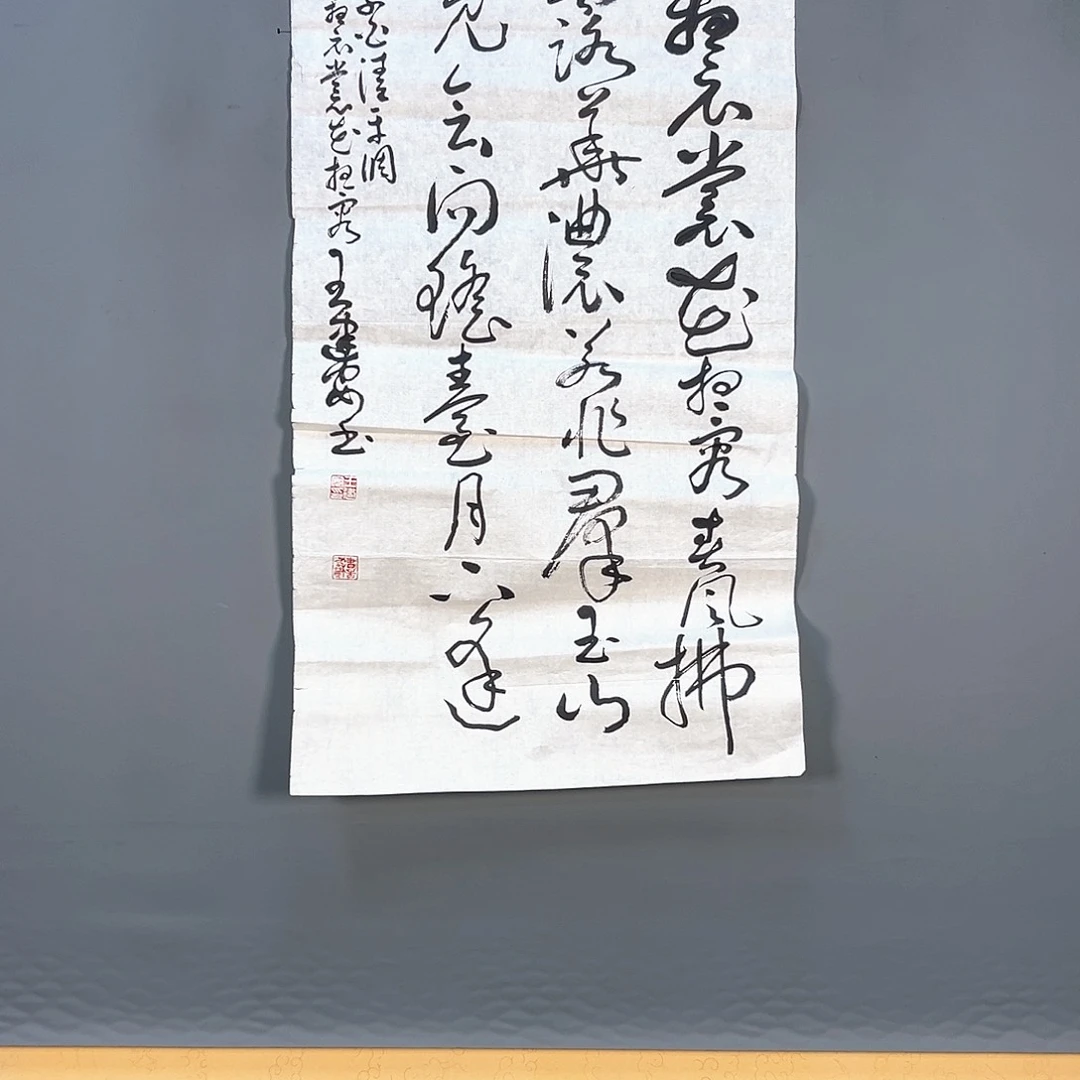 想衣裳花想容春風拂
露華濃若非羣玉山
見会向瑤臺月下逢
白清平调
想衣裳花想容 王建安书